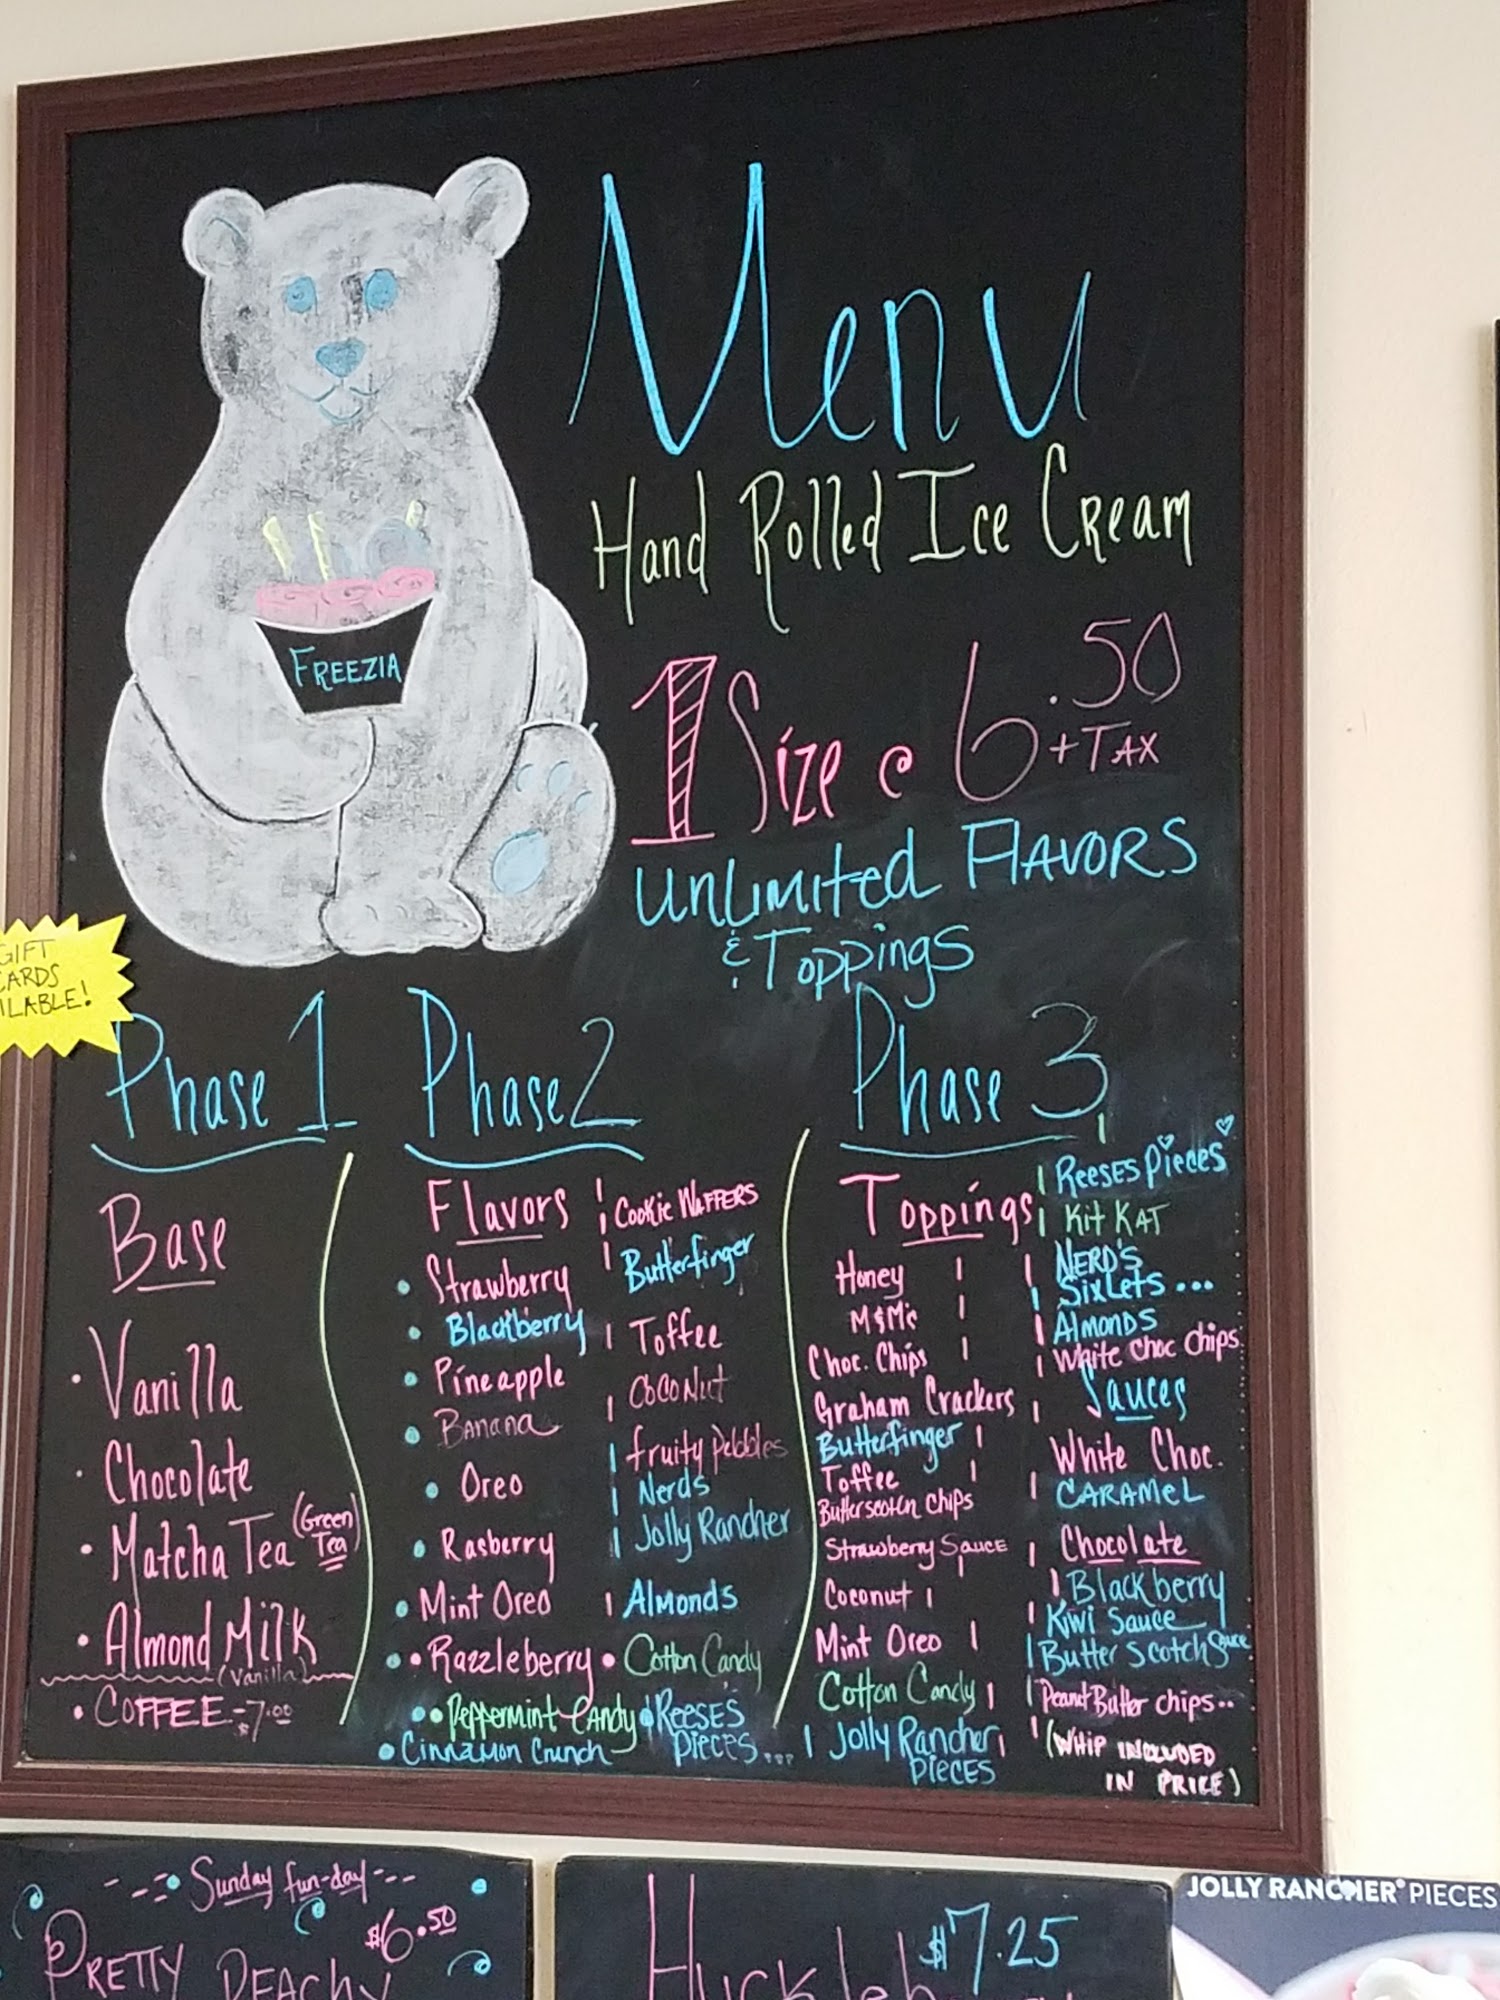 Menu
Hand Rolled Ice Cream
FREEZIA
1 Size @ 6.50
+ TAX
UNLIMITED FLAVORS
& Toppings
GIFT
CARDS
ILABLE!
Phase 1
Base
• Vanilla
• Chocolate
• Matcha Tea (Green Tea)
• Almond Milk
(Vanilla)
• COFFEE - $7.00
Phase 2
Flavors
• Strawberry
• Blackberry
• Pineapple
• Banana
• Oreo
• Rasberry
• Mint Oreo
• Razzleberry
• Peppermint Candy
• Cinnamon Crunch
Cookie Waffers
Butterfinger
Toffee
Coconut
fruity Pebbles
Nerds
Jolly Rancher
Almonds
• Cotton Candy
• REESE'S
PIECES...
Phase 3
Toppings
Honey
M&M's
Choc. Chips
Graham Crackers
Butterfinger
Toffee
Butterscotch Chips
Strawberry Sauce
Coconut
Mint Oreo
Cotton Candy
Jolly Rancher
PIECES
REESES Pieces
Kit KAT
NERD'S
SIXLETS...
Almonds
White Choc Chips
Sauces
White Choc.
CARAMEL
Chocolate
Blackberry
Kiwi Sauce
Butter Scotch Sauce
Peanut Butter Chips..
(WHIP INCLUDED
IN PRICE)
Sunday fun-day
$6.50
PRETTY PEACHY
$7.25
JOLLY RANCHER® PIECES